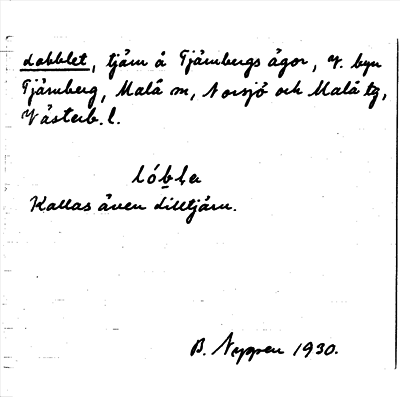 Lobblet, tjärn å Tjärnbergs ägor, v. byn
Tjärnberg, Malå sn, Norsjö och Malå tg,
Västerb. l.
lóbla
Kallas även Lilltjärn.
B. Nygren 1930.